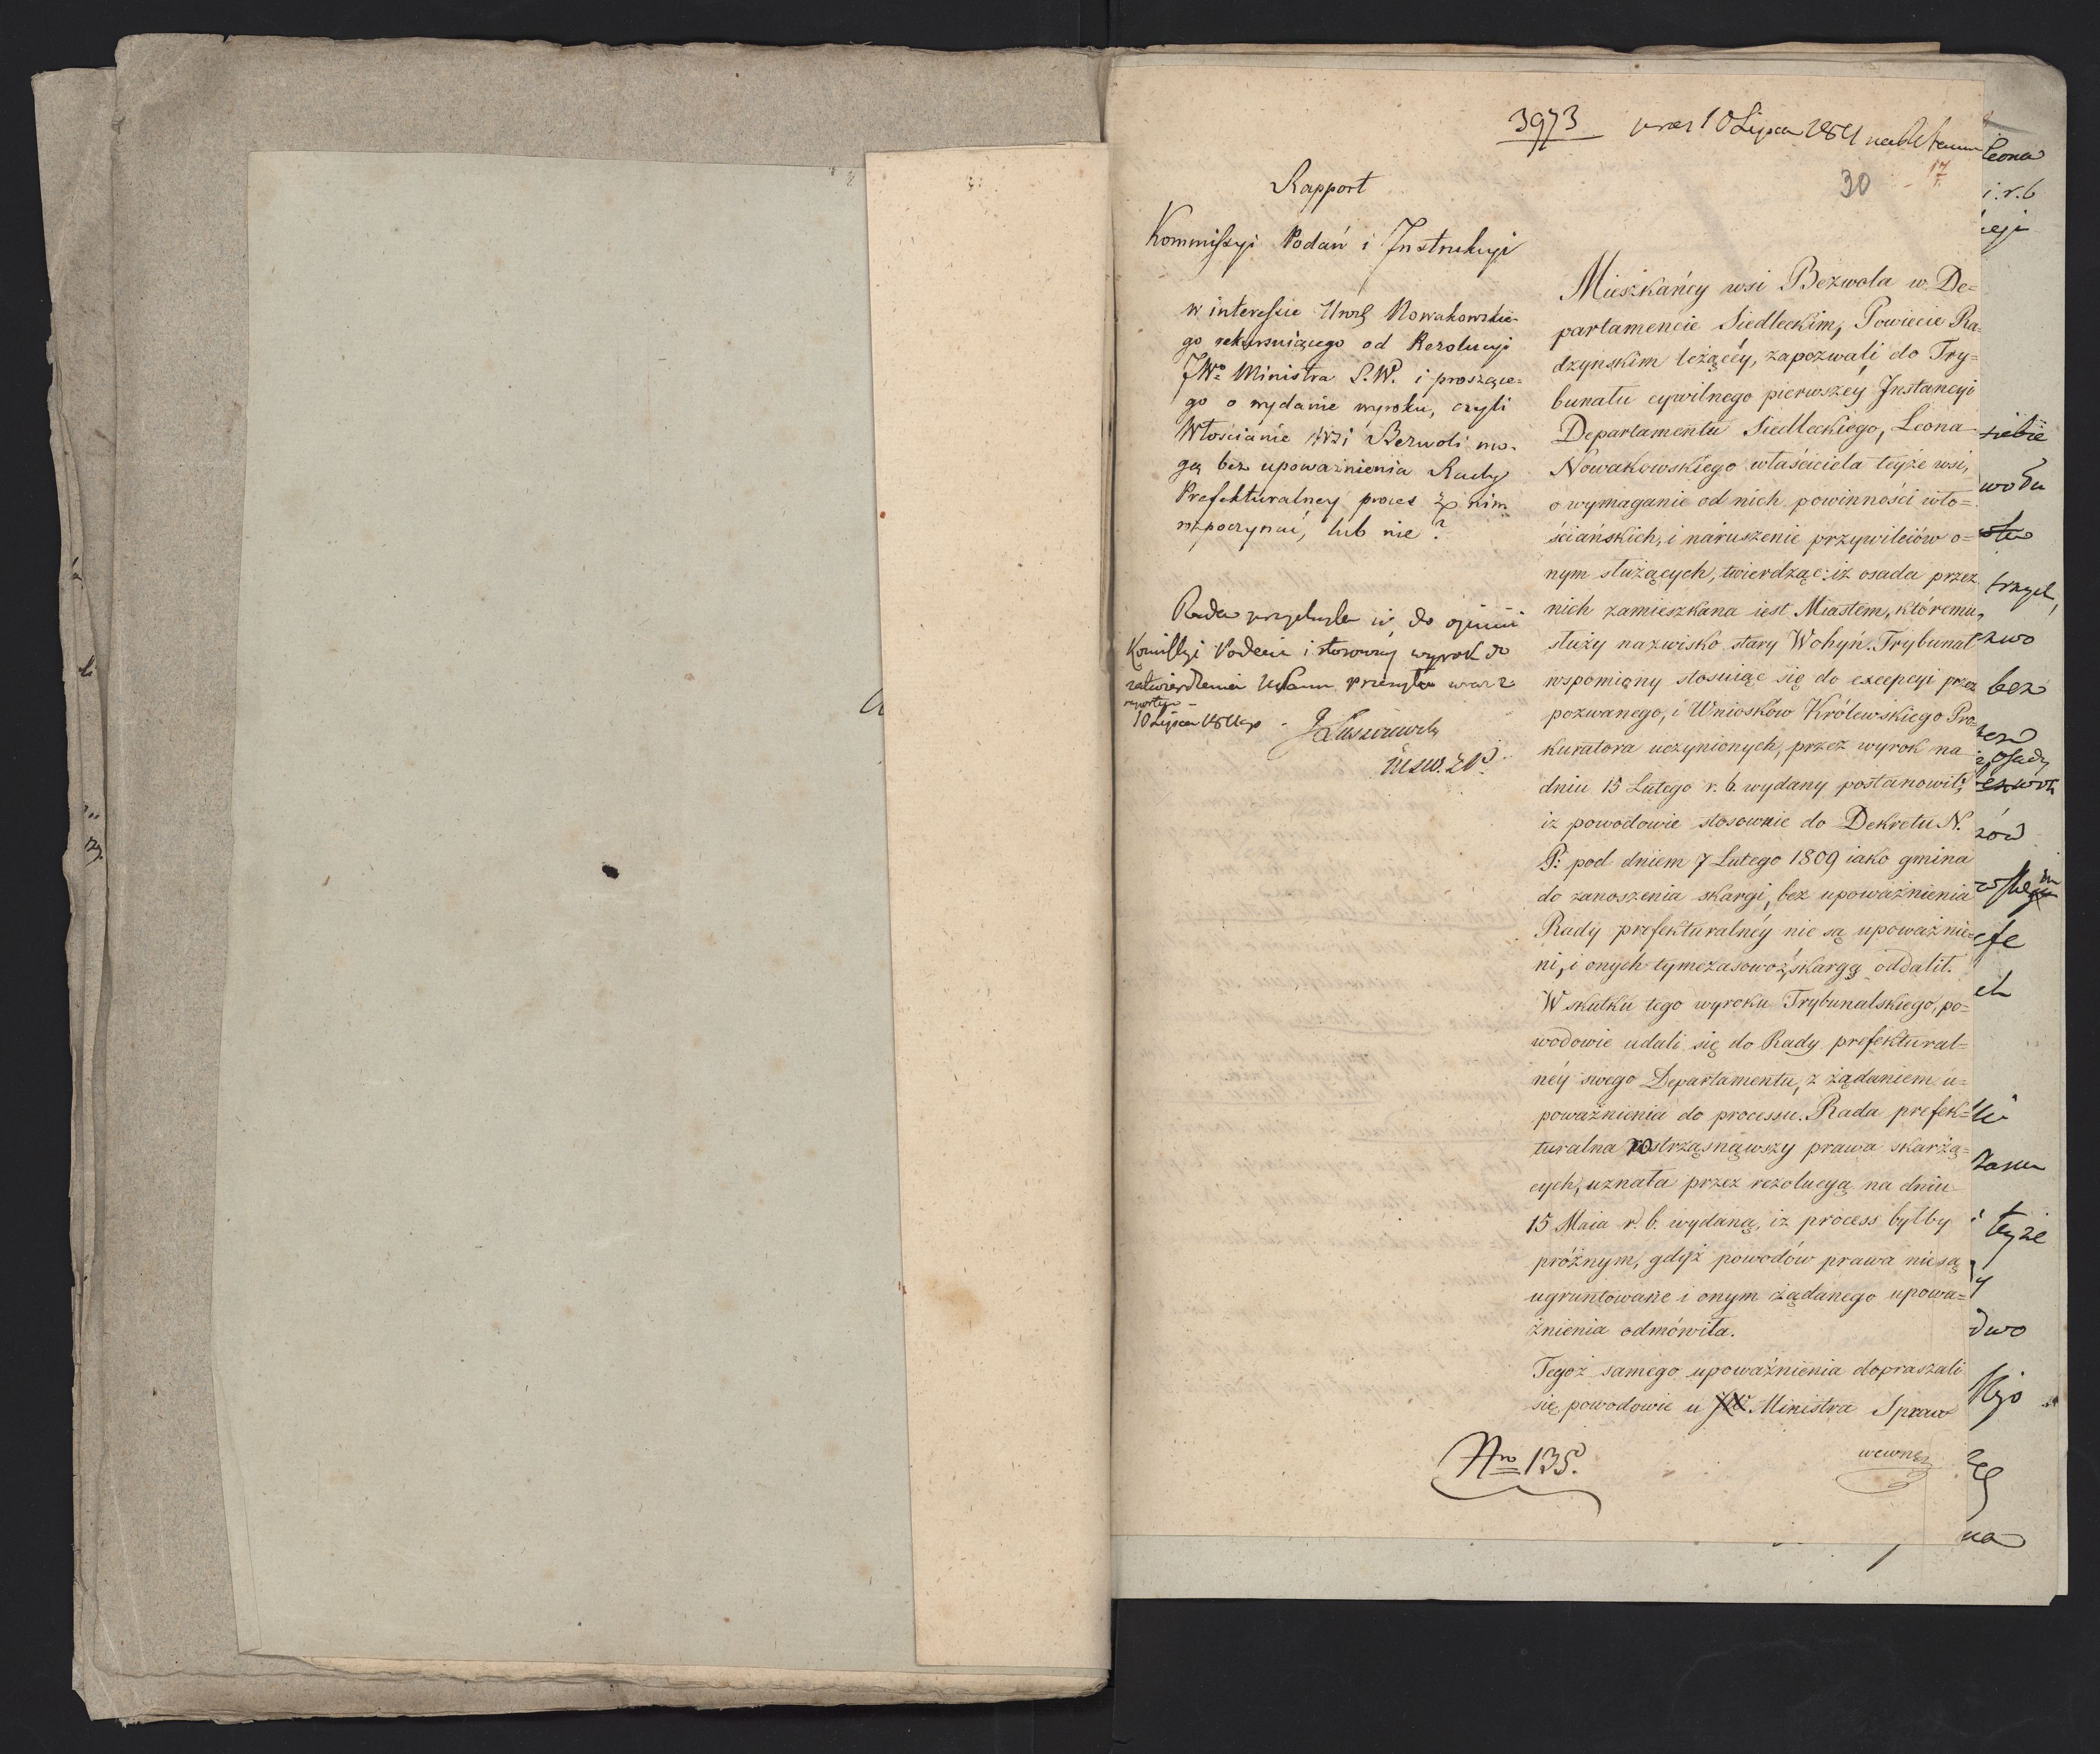 3973 prez 10 Lipca 1811
30 17
Rapport
Kommissyi Podań i Instrukcyi
w interessie Urod Nowakowskie-
go rekursuiącego od Rezolucyi
JWo Ministra S. W. i proszące-
go o wydanie wyroku, czyli
Włościanie wsi Bezwoli mo-
gą bez upoważnienia Rady
Prefekturalney proces z nim
rozpoczynać, lub nie?
Rada przychyla się do opinii
Komissyi Podań i stosowny wyrok do
zatwierdzenia przesyła wraz z
raportem
10 Lipca 1811
Mieszkańcy wsi Bezwola w De=
partamencie Siedleckim, Powiecie Ra=
dzynskim leżącéy, zapozwali do Try=
bunału cywilnego pierwszéy Instancyi
Departamentu Siedleckiego, Leona
Nowakowskiego właściciela teyże wsi,
o wymaganie od nich powinności wło=
ściańskich, i naruszenie przywileiów o=
nym służących, twierdząc: iż osada przez
nich zamieszkana iest Miastem, któremu
służy nazwisko stary Wohyń. Trybunał
wspomiony stosuiąc się do excepcyi przez
pozwanego, i Wniosków Królewskiego Pro=
kuratora uczynionych, przez wyrok na
dniu 15 Lutego r. b. wydany postanowił;
iż powodowie stosownie do Dekretu N.
P: pod dniem 7 Lutego 1809 iako gmina
do zanoszenia skargi, bez upoważnienia
Rady prefekturalnéy nie są upoważnie=
ni, i onych tymczasowo z skargą oddalił.
W skutku tego wyroku Trybunalskiego, po=
wodowie udali się do Rady prefektural=
néy swego Departamentu, z żądaniem u=
poważnienia do processu. Rada prefek=
turalna rostrząsnąwszy prawa skarżą=
cych, uznała przez rezolucyą na dniu
15 Maia r. b. wydaną, iż process byłby
próżnym, gdyż powodów prawa nie są
ugruntowane i onym żądanego upowa=
żnienia odmówiła.
Tegoż samego upoważnienia dopraszali
się powodowie u JW Ministra Spraw
wewnę
Nro 135.
Leona
i. r. b
siebie
wodu
stwo
trzych,
zwo
bez
osady
zów
ch
teyże
dwo
na